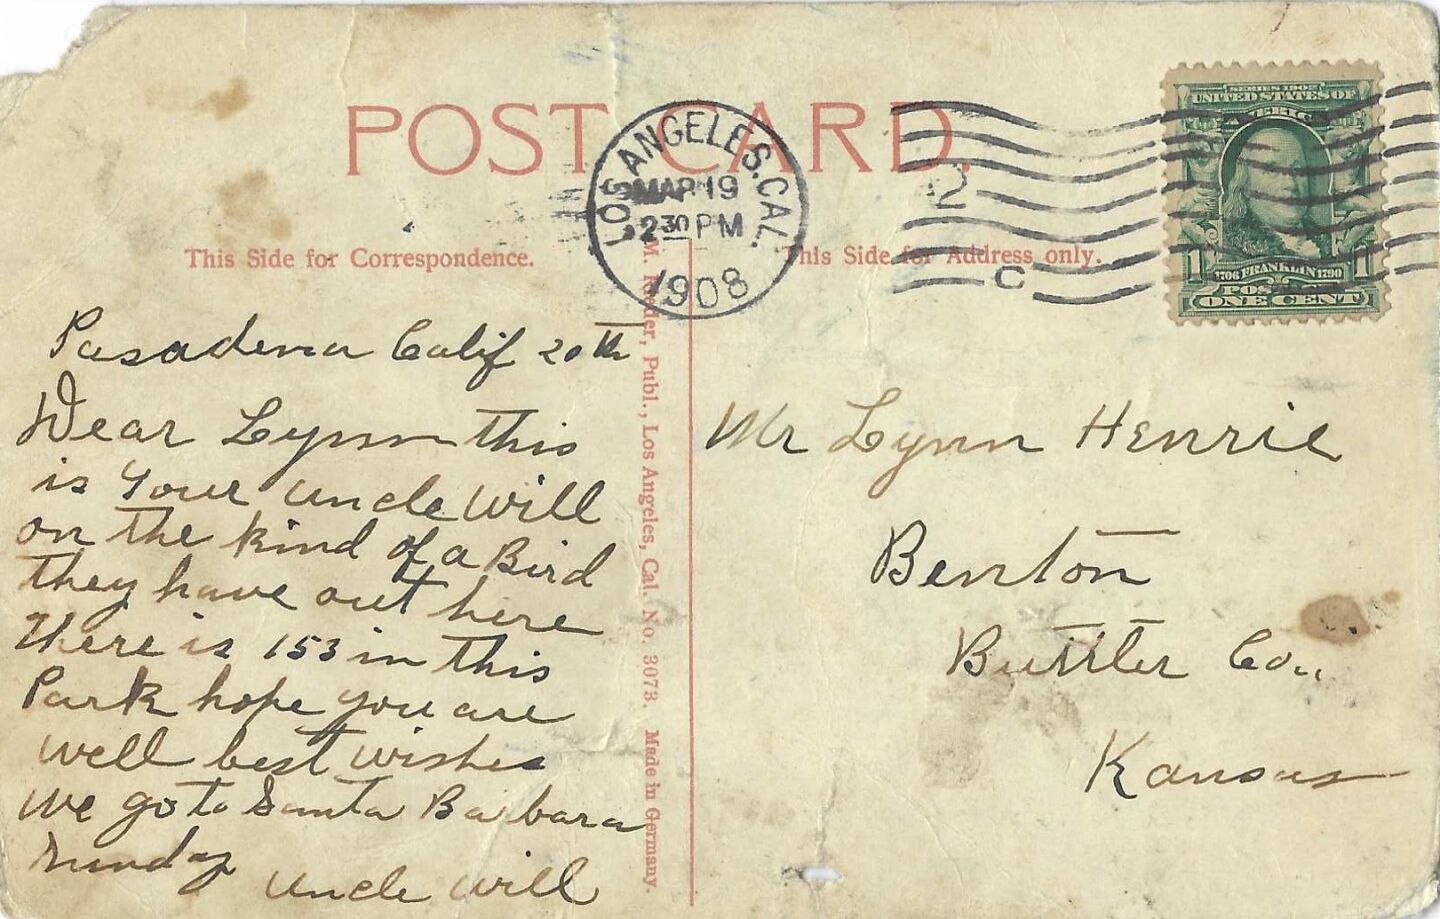 POST CARD.
LOS ANGELES. CAL.
MAR 19
2 30 PM
1908
2
C
SERIES 1902
UNITED STATES OF
AMERICA
1706 FRANKLIN 1790
1 1
POS
ONE CENT
This Side for Correspondence.
This Side for Address only.
Pasadena Calif 20th
Dear Lynn this
is your uncle Will
on the kind of a Bird
they have out here
There is 153 in this
Park hope you are
well best wishes
we go to Santa Barbara
Sunday
Uncle Will
M. Rieder, Publ., Los Angeles, Cal. No. 3073. Made in Germany.
Mr Lynn Henrie
Benton
Buttler Co..
Kansas